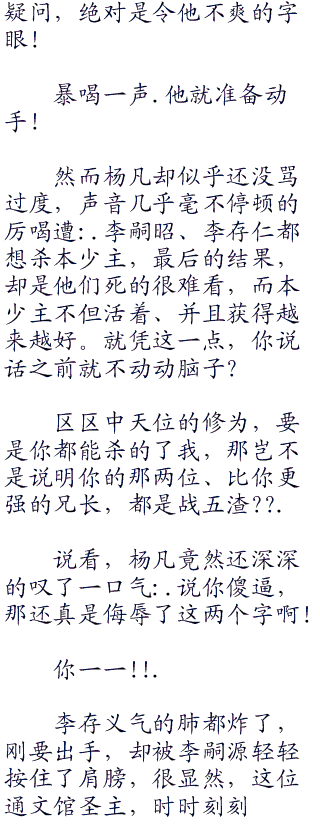 疑问，绝对是令他不爽的字
眼！
暴喝一声.他就准备动
手！
然而杨凡却似乎还没骂
过度，声音几乎毫不停顿的
厉喝遭:.李嗣昭、李存仁都
想杀本少主，最后的结果，
却是他们死的很难看，而本
少主不但活着、并且获得越
来越好。就凭这一点，你说
话之前就不动动脑子?
区区中天位的修为，要
是你都能杀的了我，那岂不
是说明你的那两位、比你更
强的兄长，都是战五渣??.
说看，杨凡竟然还深深
的叹了一口气:.说你傻逼，
那还真是侮辱了这两个字啊!
你一一!!.
李存义气的肺都炸了，
刚要出手，却被李嗣源轻轻
按住了肩膀，很显然，这位
通文馆圣主，时时刻刻